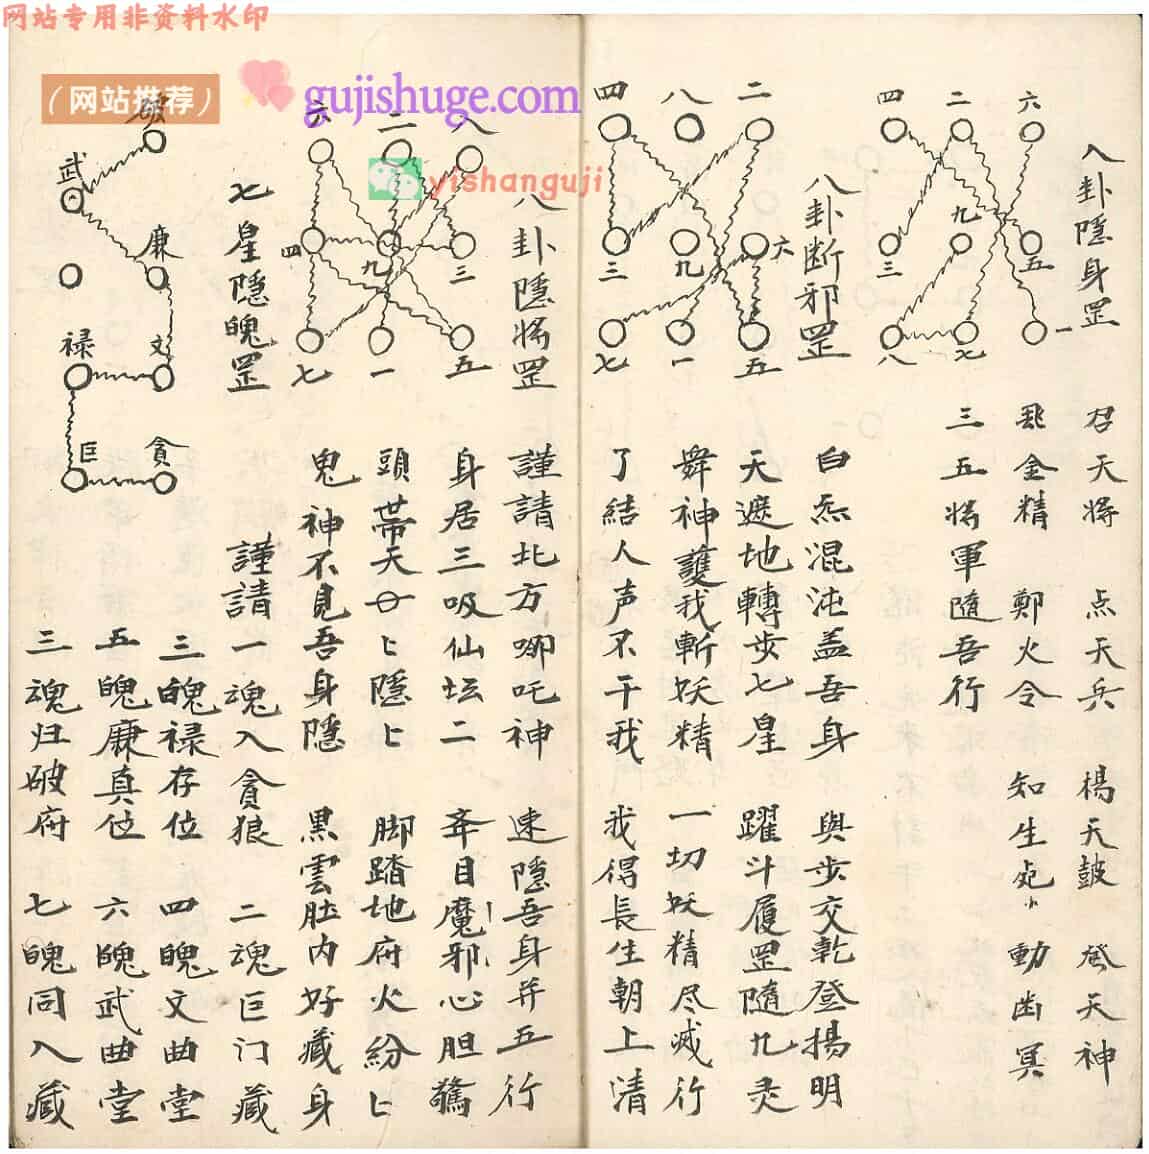 网站专用非资料水印
（网站推荐）
gujishuge.com
yishanguji
八卦隱身罡
六
二
四
九
五
三
一
七
八
召天將　点天兵　楊天鼓　發天神
金精　鄭火令　知生　動幽冥
三五將軍隨吾行
八卦断邪罡
二
八
四
六
九
三
五
一
七
白炁混沌盖吾身　與步交乾登揚明
天遮地轉步七星　躍斗履罡隨九灵
舞神護我斬妖精　一切妖精尽滅行
了結人声不干我　我得長生朝上清
八卦隱將罡
八
二
六
三
九
四
五
一
七
謹請北方哪吒神　速隱吾身并五行
身居三吸仙坛二　夲目魔邪心胆驚
頭帶天　隱　脚踏地府火紛
鬼神不見吾身隱　黑雲肚内好藏身
七星隱魄罡
破
武
廉
文
禄
巨
貪
謹請一魂入貪狼　二魂巨门藏
三魄禄存位　四魄文曲堂
五魄廉真位　六魄武曲堂
三魂归破府　七魄同入藏